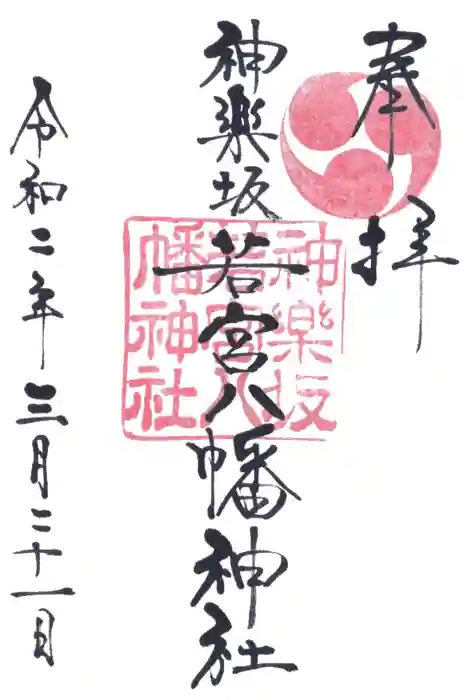 奉拝
神楽坂若宮八幡神社
神楽坂
若宮八
幡神社
令和二年三月二十一日